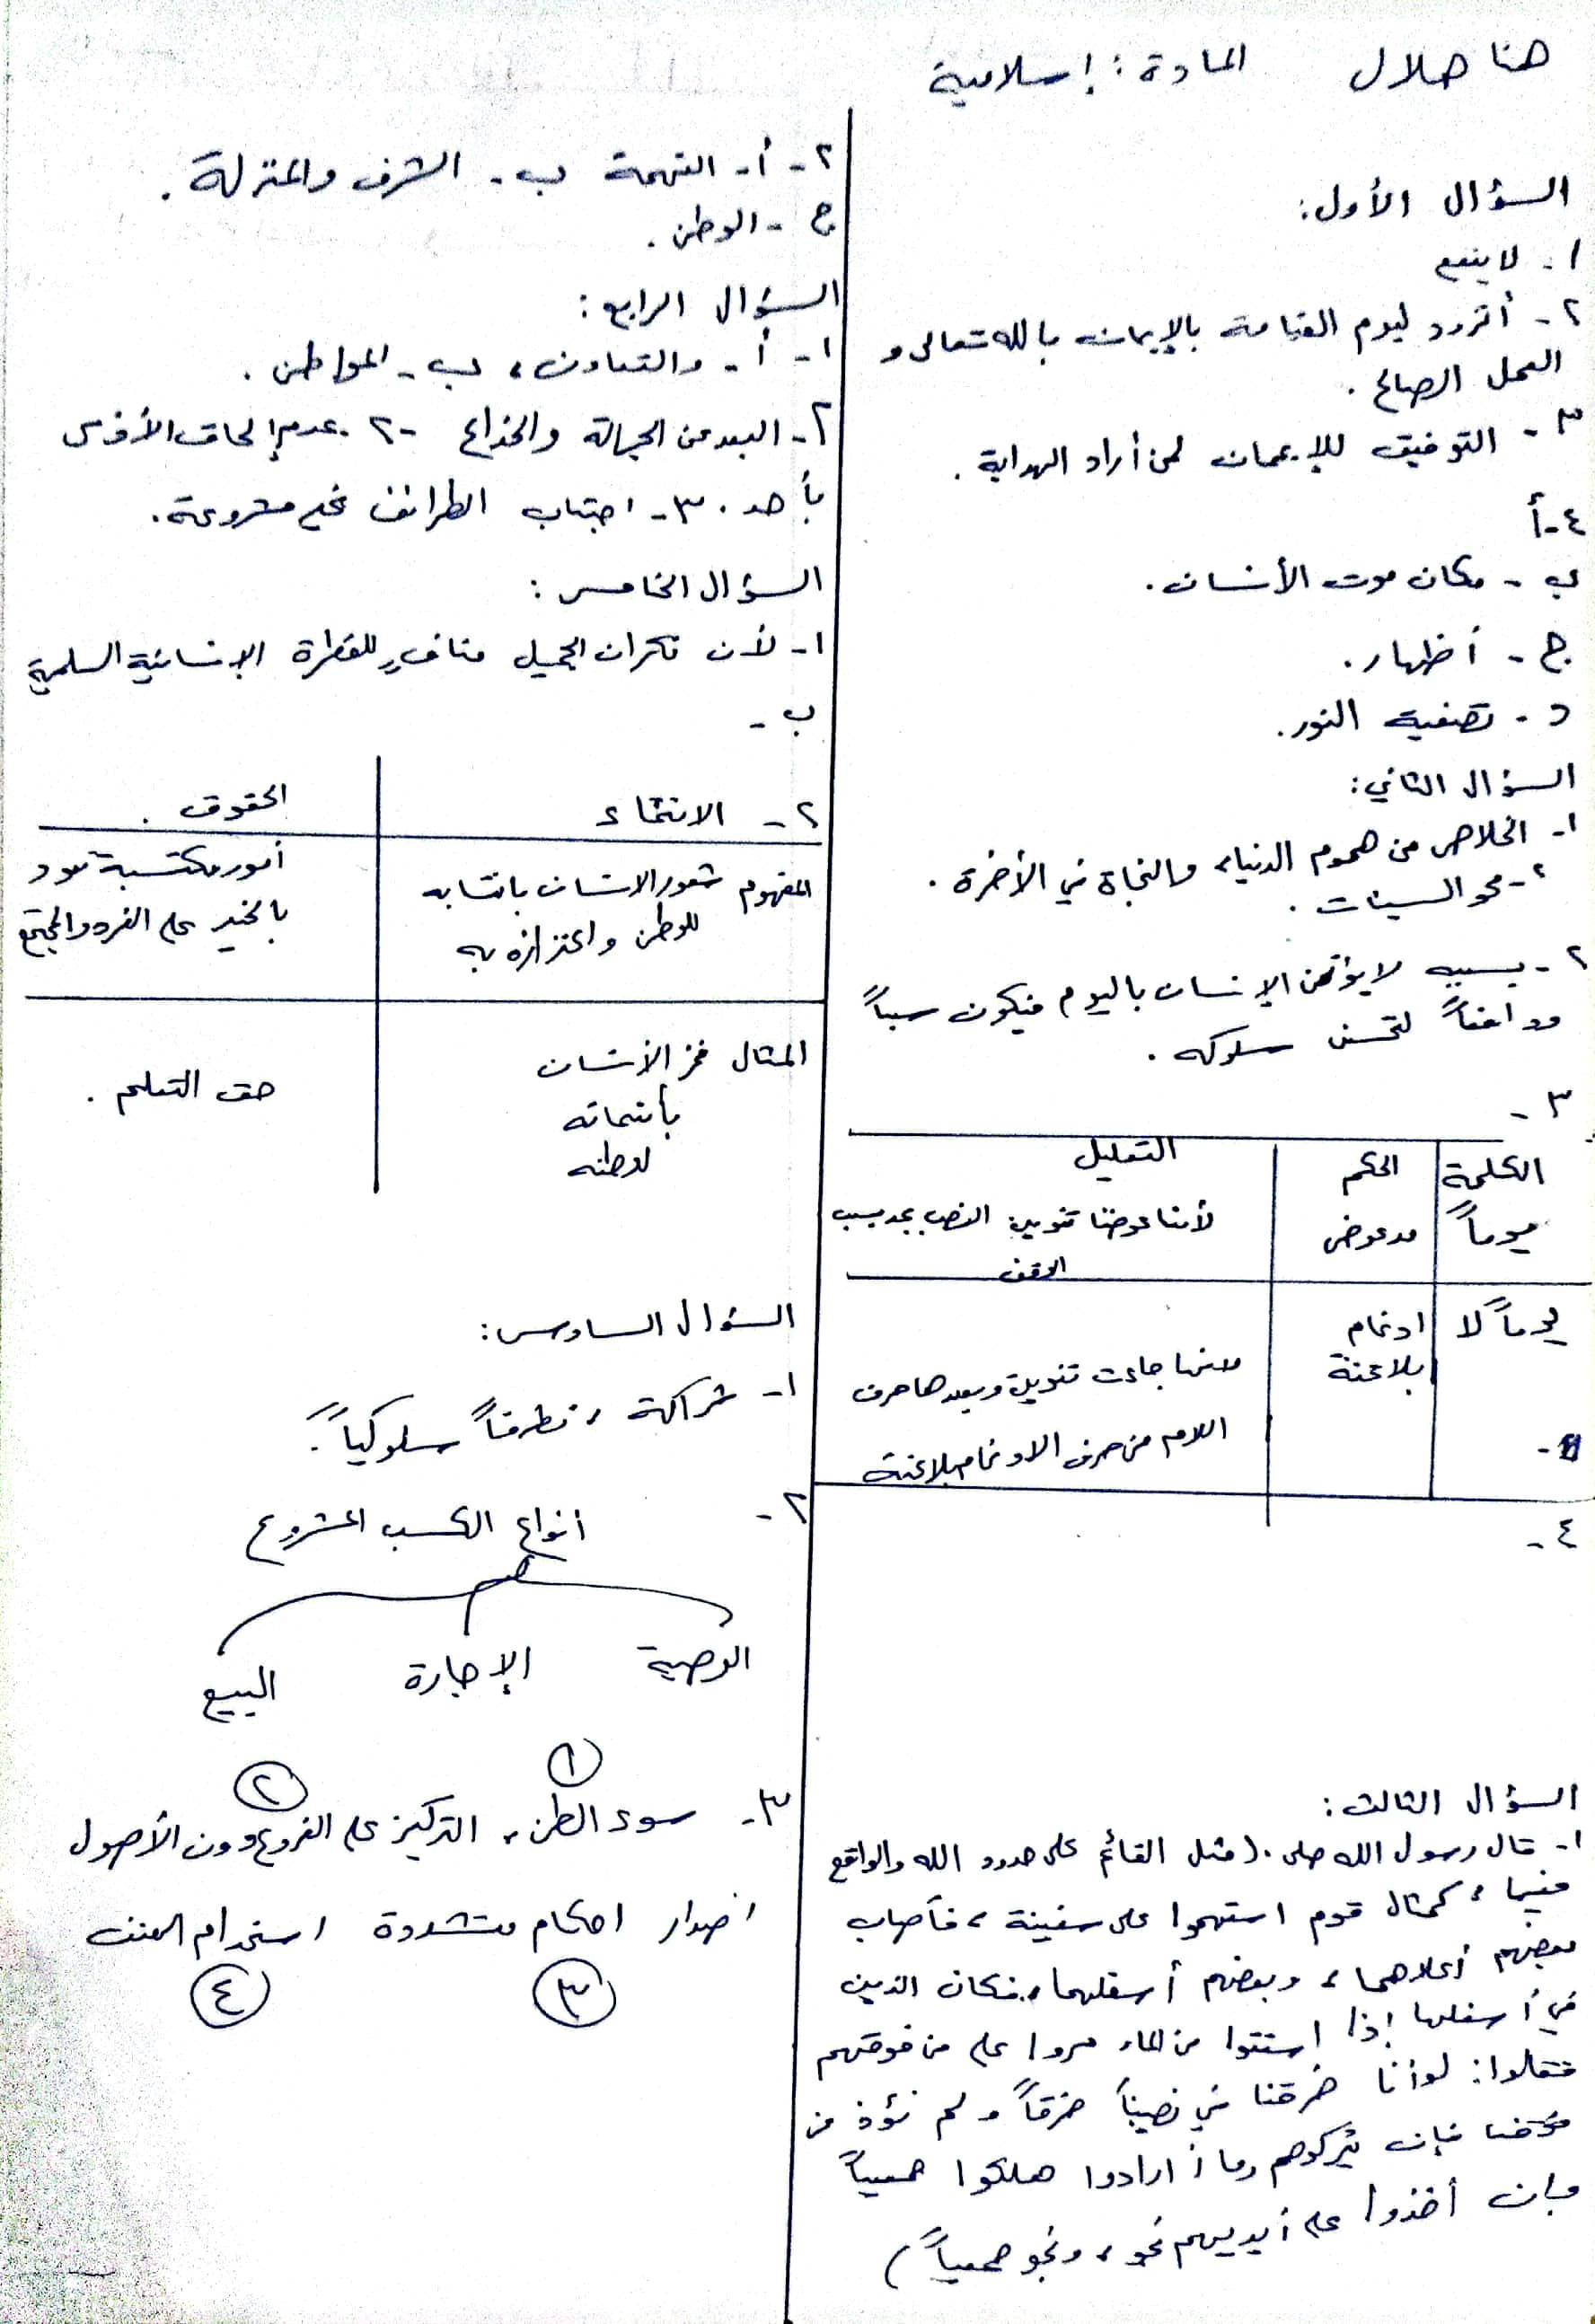 هنا هلال المادة : إسلامية
السؤال الأول:
١- لا ينفع
٢- أتزود ليوم القيامة بالإيمان بالله تعالى و
العمل الصالح .
٣- التوفيق للإيمان لمن أراد الهداية .
٤-أ
ب - مكان موت الأنسان .
ج - أظهار .
د - تصفية النور .
السؤال الثاني:
١- الخلاص من هموم الدنيا، والنجاة في الأخرة .
٢- محو السيئات .
٢- بسببه لا يؤمن الإنسان باليوم فيكون سبباً
ودافعاً لتحسن سلوكه .
٣ -
الكلمة الحكم التعليل
يوماً مد عوض لأننا عوضنا تنوين النصب بمد بسبب
الوقف
يوماً لا ادغام
بلا غنة
لانها جاءت تنوين وبعدها حرف
اللام من حرف الادغام بلا غنة
٤ -
السؤال الثالث :
١- قال رسول الله صلى . (مثل القائم على حدود الله والواقع
فيها ، كمثال قوم استهموا على سفينة ، فأصاب
بعضهم أعلاهما ، وبعضهم أسفلهما، فكان الذين
في أسفلها إذا استقوا من الماء مروا على من فوقهم
فقالوا: لو أنا خرقنا في نصيباً خرقاً ولم نؤذ من
فوقنا فإن يتركوهم وما أرادوا هلكوا جميعاً
وإن أخذوا على أيديهم نجو، ونجو جميعاً )
٢- أ- التهمة ب - الشرف والمنزلة .
ج - الوطن .
السؤال الرابع :
١- أ - والتعاون ، ب - المواطن .
٢- البعد عن الجهالة والخداع ٢- عدم إلحاق الأذى
بأحد . ٣- اجتناب الطرائف غير مشروعة .
السؤال الخامس :
١- لأن نكران الجميل منافٍ للفطرة الإنسانية السلمية
ب -
٢- الانتماء الحقوق .
المفهوم شعور الانسان بانتسابه
للوطن واعتزازه به
أمور مكتسبة تعود
بالخير على الفرد والمجتمع
المثال فخر الأنسان
بأنتمائه
لوطنه
حق التعلم .
السؤال السادس :
١- شراكة ، تطرفاً سلوكياً .
٢ - أنواع الكسب المشروع
الوصية الإجارة البيع
١ ٢
٣- سوء الظن ، التركيز على الفروع دون الأصول
اصدار احكام متشددة استخدام العنف
٣ ٤